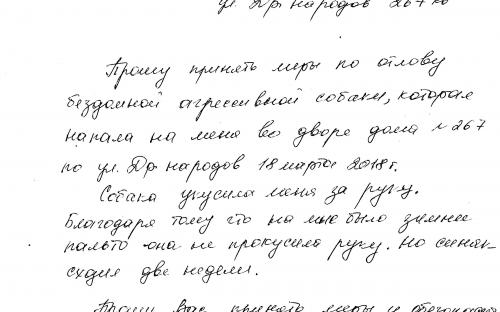 ул. Др. народов 267
Прошу принять меры по отлову
бездомной агрессивной собаки, которая
напала на меня во дворе дома № 267
по ул. Др. народов 18 марта 2018 г.
Собака укусила меня за руку.
Благодаря тому что на мне было зимнее
пальто она не прокусила руку. Но синяк
сходил две недели.
Прошу Вас принять меры и